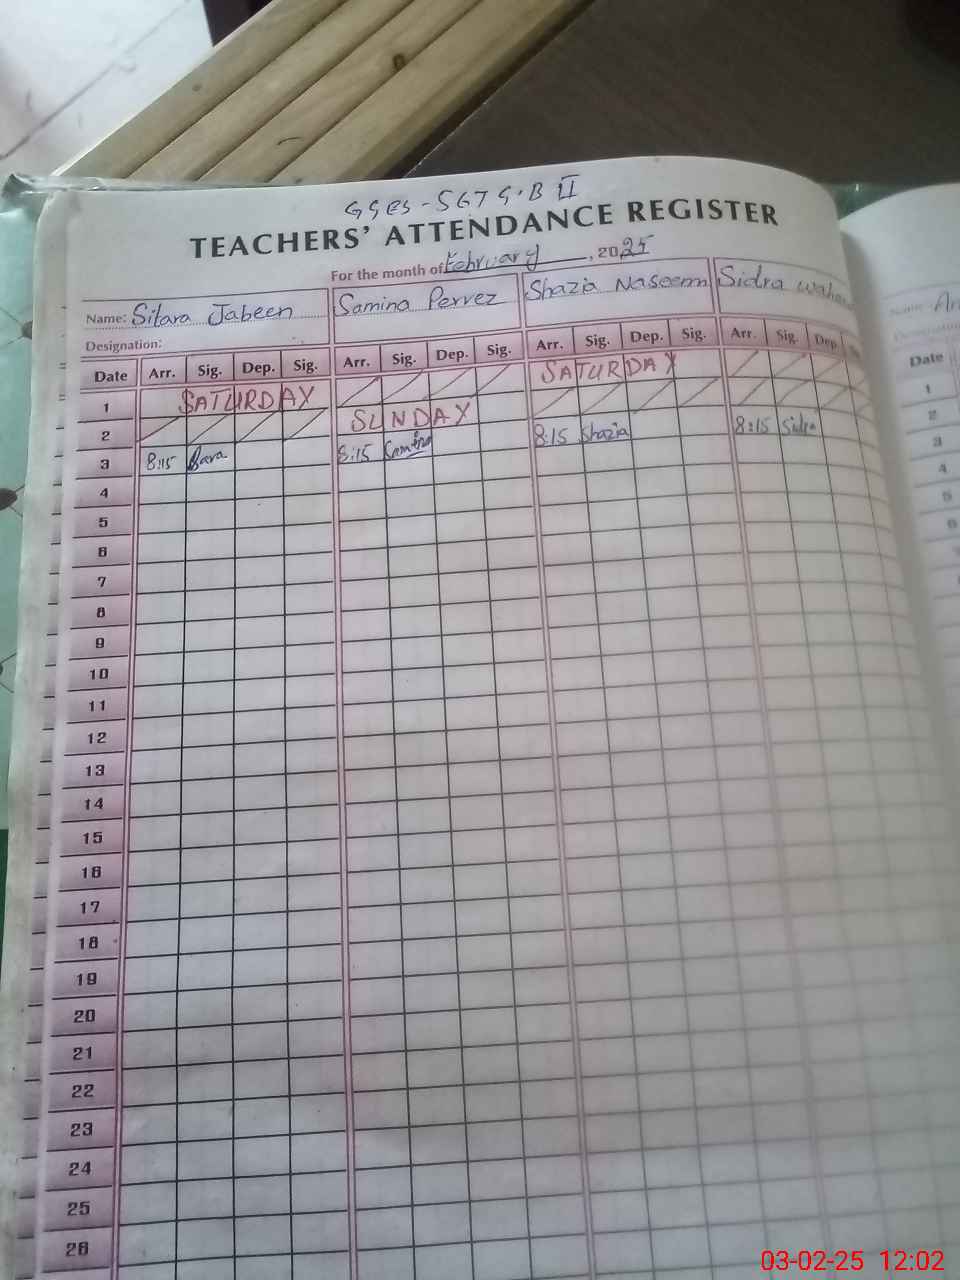 GGES - SGT G.B II
TEACHERS' ATTENDANCE REGISTER
For the month of February, 2025
Name: Sitara Jabeen Samina Pervez Shazia Naseem Sidra
Designation:
Date Arr. Sig. Dep. Sig. Arr. Sig. Dep. Sig. Arr. Sig. Dep. Sig. Arr. Sig. Dep. Date
1 SATURDAY SATURDAY 1
2 SUNDAY 2
3 8:15 8:15 8:15 Shazia 8:15 Sidra 3
4 4
5 5
6 6
7
8
9
10
11
12
13
14
15
16
17
18
19
20
21
22
23
24
25
26
03-02-25 12:02